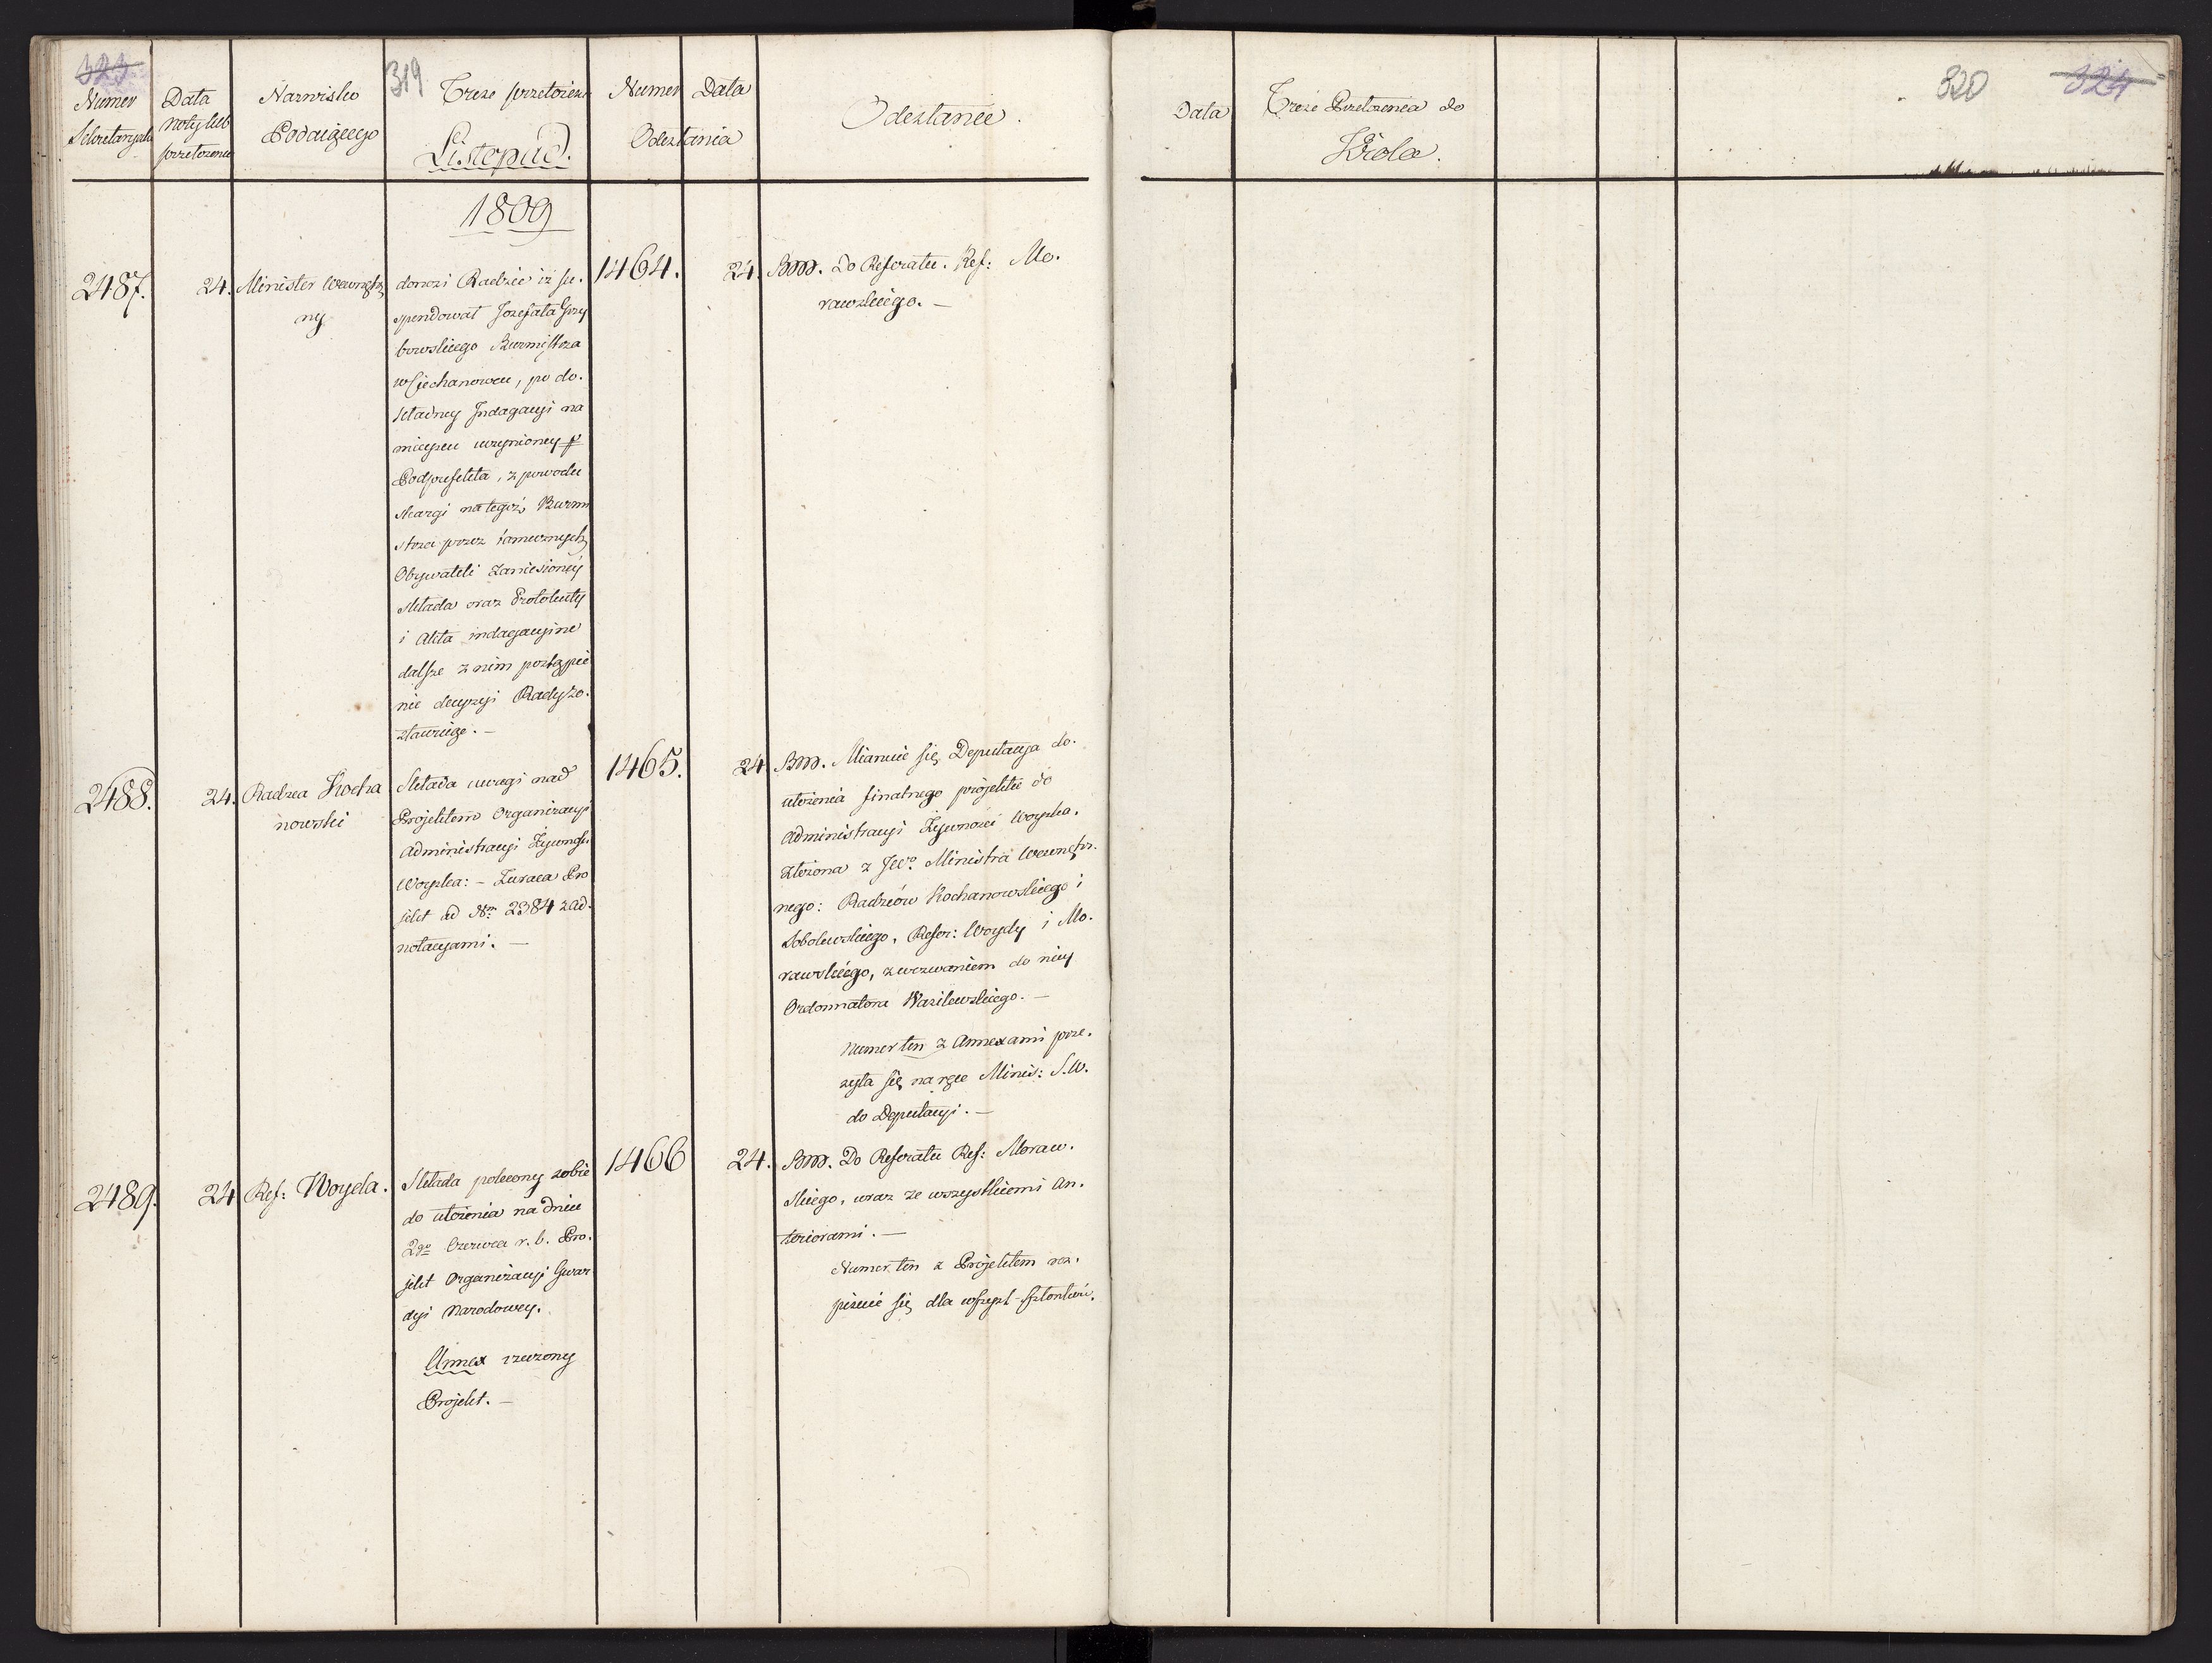 323
319
Numer
Sekretaryatu
Data
noty lub
przełożenia
Nazwisko
Podaiącego
Treść przełożenia
Listopad.
Numer Data
Odesłania
Odesłanie.
Data
Treść Przełożenia do
Króla.
320
324
1809
2487.
24.
Minister Wewnętrz
ny
donosi Radzie iż su.
spendował Jozefata Grzy
bowskiego Burmistrza
w Ciechanowcu, po do.
kładney Indagacyi na
mieyscu uczynioney p
Podprefekta, z powodu
skargi na tegoż Burmi
strza przez tamecznych
Obywateli zaniesioney
składa oraz Protokuły
i Akta indagacyine
dalsze z nim postąpie
nie decyzyi Rady zo.
stawuiąc. —
1464.
24.
BM. Do Referatu. Ref: Mo.
rawskiego. —
2488.
24.
Radzca Kocha
nowski
Składa uwagi nad
Projektem Organizacyi
Administracyi Żywności
Woyska: – Zwraca Pro
jekt ad Nm 2384 z ad.
notacyami. —
1465.
24
BM. Mianuie się Deputacya do.
ułożenia finalnego projektu do
Administracyi Żywności Woyska.
złożona z JWo Ministra Wewnętrz.
nego: Radzców Kochanowskiego i
Sobolewskiego, Refer: Woydy i Mo.
rawskiego, z wezwaniem do niey
Ordonnatora Wasilewskiego. —
Numer ten z Annexami prze.
syła się na ręce Minis: S.W.
do Deputacyi. —
2489.
24
Ref: Woyda.
Składa polecony sobie
do ułożenia na dniu
2go Czerwca r. b. Pro.
jekt Organizacyi Gwar
dyi Narodowey.
Annex rzeczony
Projekt. —
1466
24.
BM. Do Referatu Ref: Moraw.
skiego, wraz ze wszystkiemi An.
teriorami. —
Numer ten z Projektem roz.
pisuie się dla wszyst. Członków.